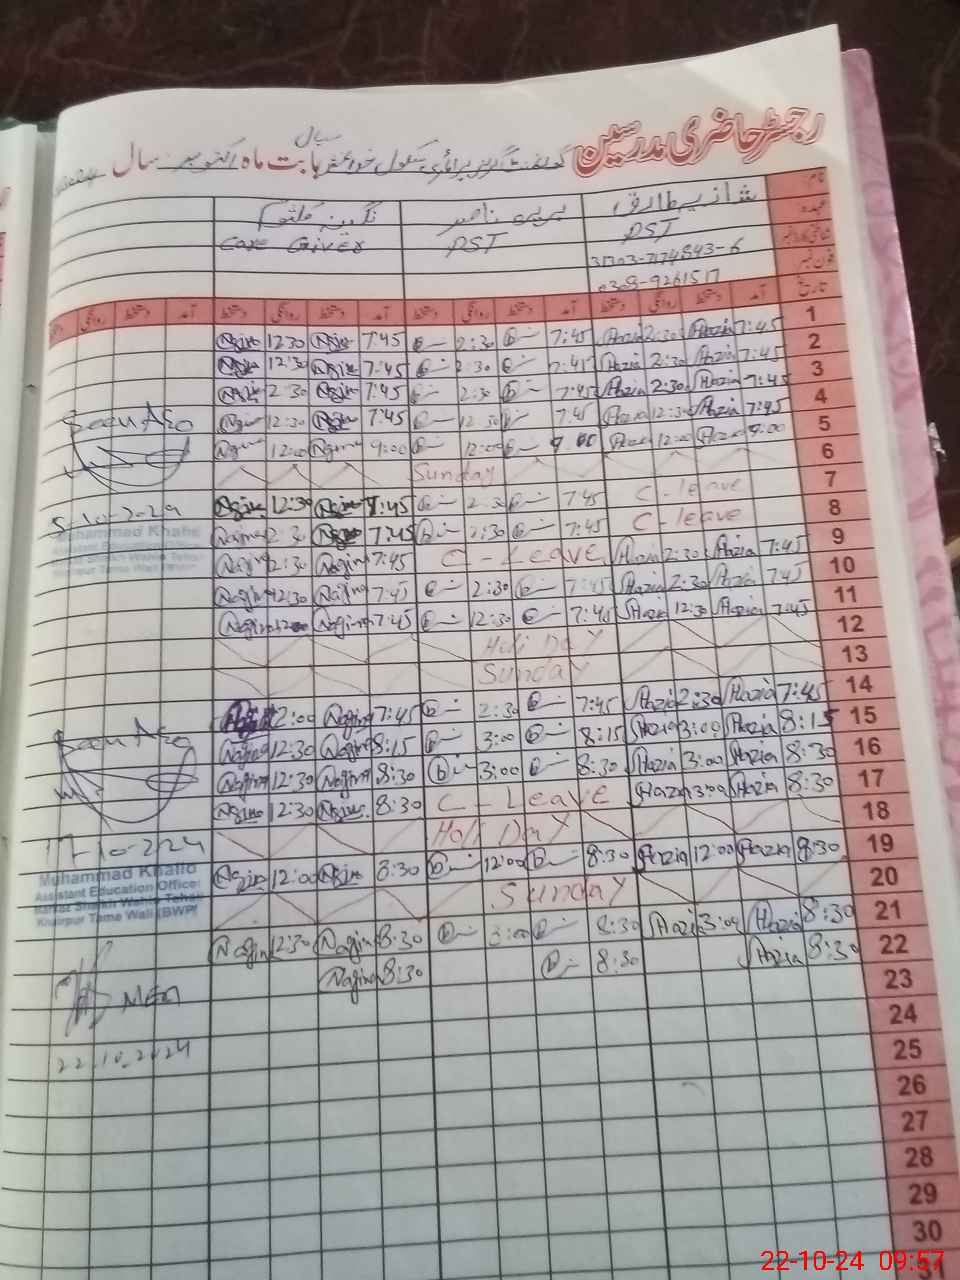 رجسٹر حاضری مدرسین گورنمنٹ گرلز پرائمری سکول بابت ماہ اکتوبر سال
نام: شازیہ طارق ناصر نگین کلثوم
عہدہ PST PST Care Giver
31303-7174843-6
فون نمبر 0309-9261517
تاریخ آمد دستخط روانگی دستخط آمد دستخط روانگی دستخط آمد دستخط روانگی دستخط آمد دستخط روانگی دستخط
1 7:45 Shazia 2:30 Shazia 7:45 2:30 7:45 Nagina 12:30 Nagina
2 7:45 Shazia 2:30 Shazia 7:45 2:30 7:45 Nagina 12:30 Nagina
3 7:45 Shazia 2:30 Shazia 7:45 2:30 7:45 Nagina 2:30 Nagina
4 7:45 Shazia 12:30 Shazia 7:45 12:30 7:45 Nagina 12:30 Nagina
5 9:00 Shazia 12:00 Shazia 9:00 12:00 9:00 Nagina 12:00 Nagina
6 Sunday
7 C-leave 7:45 2:30 7:45 Nagina 12:30 Nagina
8 C-leave 7:45 2:30 7:45 Nagina 2:30 Nagina
9 7:45 Shazia 2:30 Shazia C-Leave 7:45 Nagina 2:30 Nagina
10 7:45 Shazia 2:30 Shazia 7:45 2:30 7:45 Nagina 12:30 Nagina
11 7:45 Shazia 12:30 Shazia 7:45 12:30 7:45 Nagina Nagina
12 Holi Day
13 Sunday
14 7:45 Shazia 2:30 Shazia 7:45 2:30 7:45 Nagina 2:00
15 8:15 Shazia 3:00 Shazia 8:15 3:00 8:15 Nagina 12:30 Nagina
16 8:30 Shazia 3:00 Shazia 8:30 3:00 8:30 Nagina 12:30 Nagina
17 8:30 Shazia 3:00 Shazia C-Leave 8:30 Nagina 12:30 Nagina
18 Holi Day
19 8:30 Shazia 12:00 Shazia 8:30 12:00 8:30 Nagina 12:00 Nagina
20 Sunday
21 8:30 Shazia 3:00 Shazia 8:30 3:00 8:30 Nagina 12:30 Nagina
22 8:30 Shazia 8:30 8:30 Nagina
23
24
25
26
27
28
29
30
Seen AEO
5-10-2024
Muhammad Khalid
Assistant Education Officer
Seen AEO
17-10-2024
Muhammad Khalid
Assistant Education Officer
Markaz Shaikh Wahin Tehsil
Khairpur Tame Wali (BWP)
MEA
22.10.2024
22-10-24 09:57